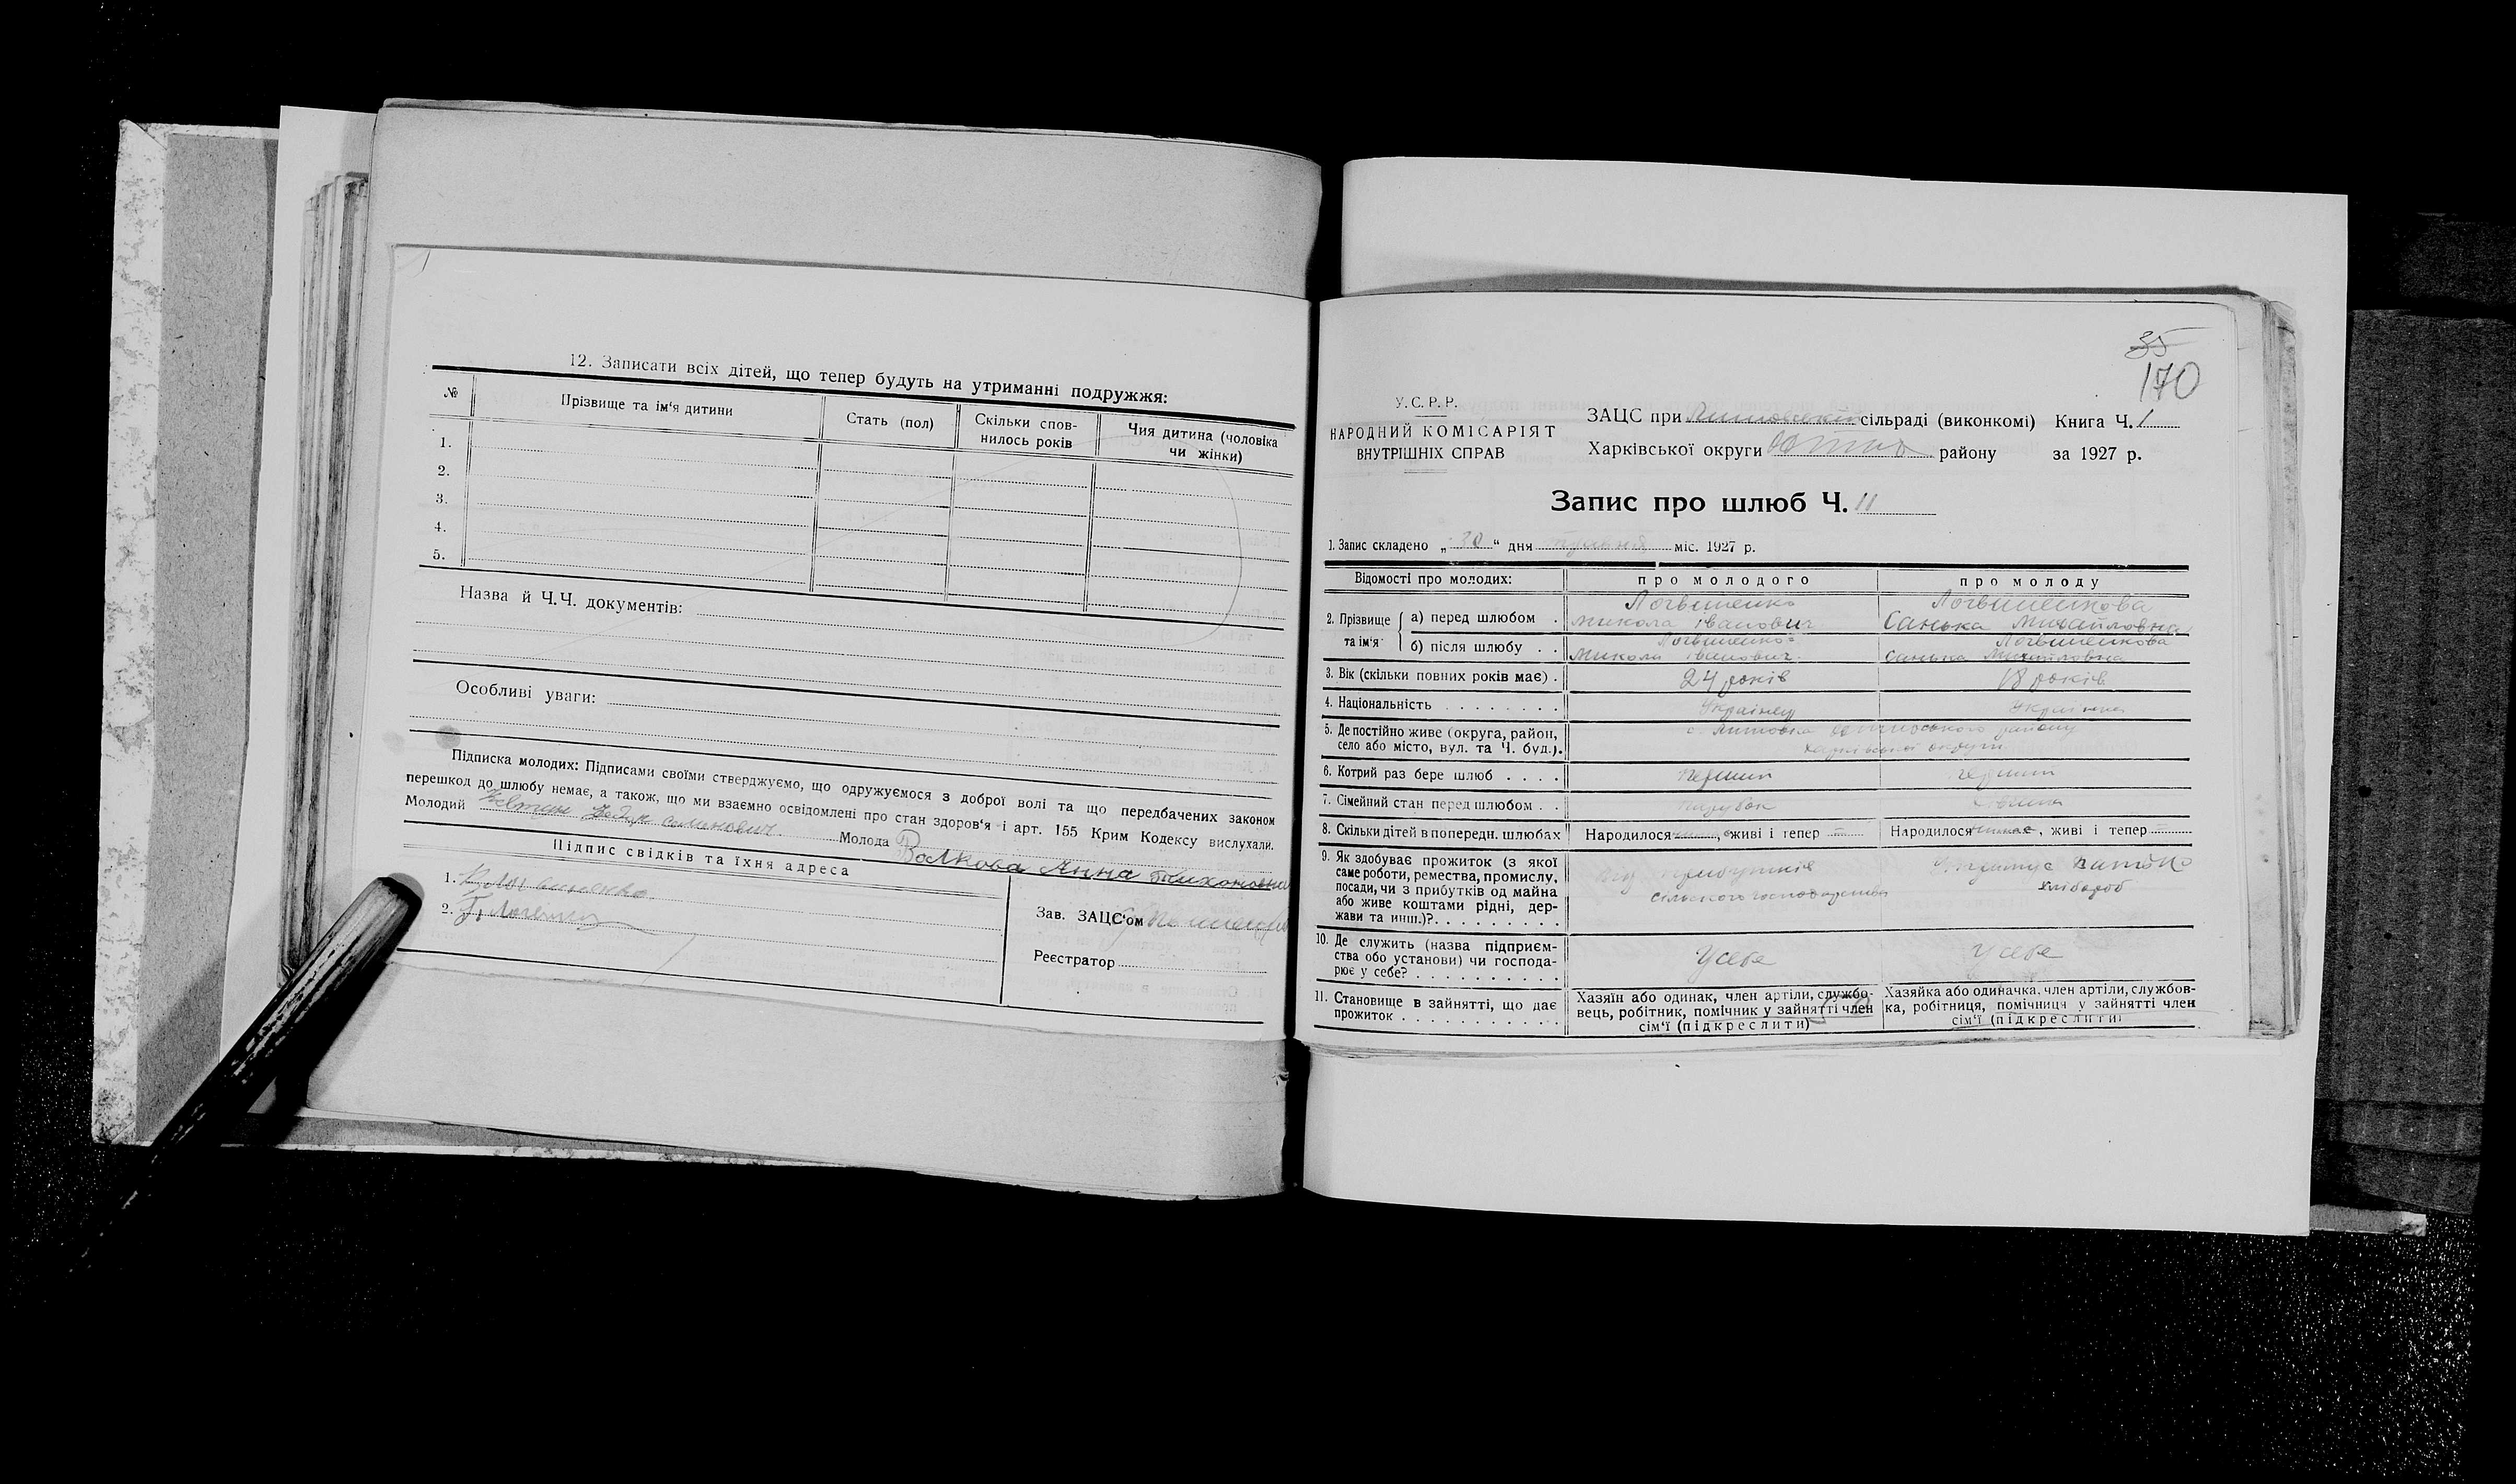 12. Записати всіх дітей, що тепер будуть на утриманні подружжя:
№ Прізвище та ім'я дитини Стать (пол) Скільки спов-нилось років Чия дитина (чоловіка чи жінки)
1.
2.
3.
4.
5.
Назва й Ч.Ч. документів:
Особливі уваги:
Підписка молодих: Підписами своїми стверджуємо, що одружуємося з доброї волі та що передбачених законом
перешкод до шлюбу немає, а також, що ми взаємно освідомлені про стан здоров'я і арт. 155 Крим Кодексу вислухали.
Молодий Семенович. Молода Волкова Анна Тихоновна
Підпис свідків та їхня адреса
1.
2.
Зав. ЗАЦС'ом
Реєстратор
35
170
У.С.Р.Р.
НАРОДНИЙ КОМІСАРІЯТ
ВНУТРІШНІХ СПРАВ
ЗАЦС при сільраді (виконкомі) Книга Ч. 1
Харківської округи району за 1927 р.
Запис про шлюб Ч. 11
1. Запис складено „30" дня міс. 1927 р.
Відомості про молодих: про молодого про молоду
2. Прізвище та ім'я
а) перед шлюбом . Логвиненко Микола Іванович Логвиненкова Санька Михайловна
б) після шлюбу . . Логвиненко Микола Іванович Логвиненкова Санька Михайловна
3. Вік (скільки повних років має) . 24 років 18 років
4. Національність . . . . . . . . Українец Українка
5. Де постійно живе (округа, район, с. району
село або місто, вул. та Ч. буд.). Харківської округи
6. Котрий раз бере шлюб . . . . перший перший
7. Сімейний стан перед шлюбом . . парубок дівчина
8. Скільки дітей в попередн. шлюбах Народилося , живі і тепер — Народилося , живі і тепер —
9. Як здобуває прожиток (з якої
саме роботи, ремества, промислу,
посади, чи з прибутків од майна
або живе коштами рідні, дер-
жави та инш.)?. . . . . . . . .
прибутків
сільского господарства
батько
хлібороб
10. Де служить (назва підприєм-
ства обо установи) чи господа-
рює у себе? . . . . . . . . . .
У себе
У себе
11. Становище в зайнятті, що дає
прожиток . . . . . . . . . . .
Хазяїн або одинак, член артіли, службо-
вець, робітник, помічник у зайнятті член
сім'ї (підкреслити)
Хазяйка або одиначка, член артіли, службов-
ка, робітниця, помічниця у зайнятті член
сім'ї (підкреслити)